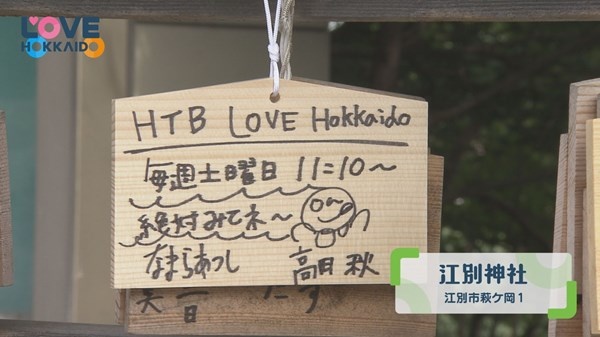 LOVE
HOKKAIDO
HTB LOVE Hokkaido
毎週土曜日 11:10〜
絶対みてネ〜
なまらあつし
高田 秋
江別神社
江別市萩ケ岡1